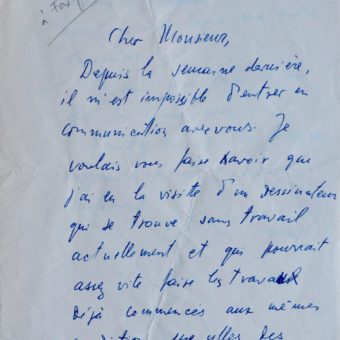 à
Cher Monsieur,
Depuis la semaine dernière,
il m'est impossible d'entrer en
communication avec vous. Je
voulais vous faire savoir que
j'ai eu la visitte d'un dessinateur
qui se trouve sans travail
actuellement et qui pourrait
assez vite faire les travaux
Déjà commencés aux mêmes
des